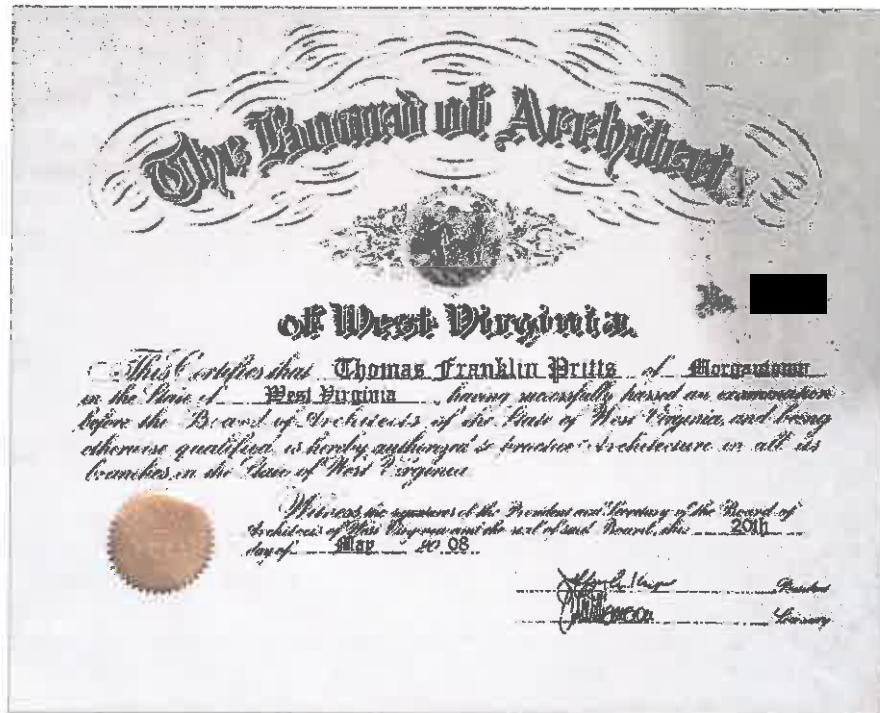 The Board of Architects
No.
of West Virginia.
This Certifies that Thomas Franklin Pritts of Morgantown
in the State of West Virginia, having successfully passed an examination
before the Board of Architects of the State of West Virginia, and being
otherwise qualified, is hereby authorized to practice Architecture in all its
branches in the State of West Virginia
Witness, the signatures of the President and Secretary of the Board of
Architects of West Virginia and the seal of said Board, this 20th
day of May 20 08
President
Secretary